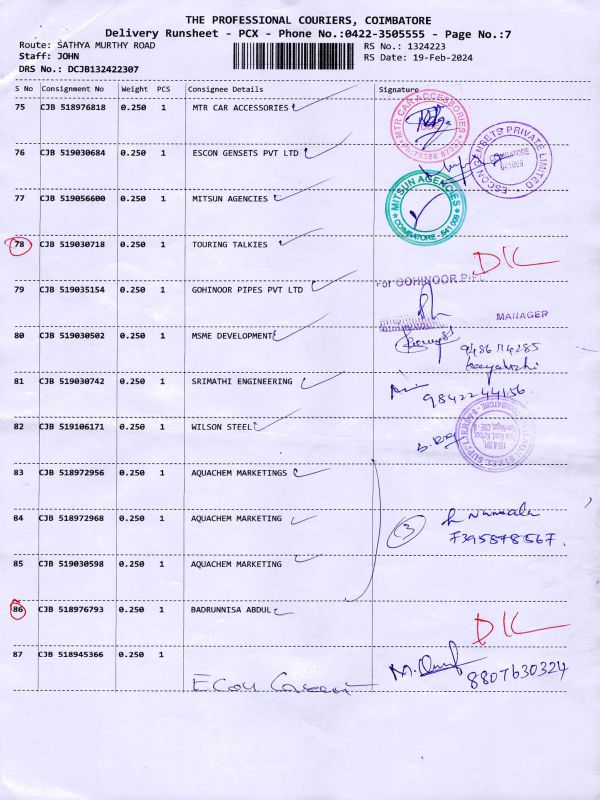 THE PROFESSIONAL COURIERS, COIMBATORE
Delivery Runsheet - PCX - Phone No.:0422-3505555 - Page No.:7
Route: SATHYA MURTHY ROAD RS No.: 1324223
Staff: JOHN RS Date: 19-Feb-2024
DRS No.: DCJB132422307
S No Consignment No Weight PCS Consignee Details Signature
75 CJB 518976818 0.250 1 MTR CAR ACCESSORIES
MTR CAR ACCESSORIES
76 CJB 519030684 0.250 1 ESCON GENSETS PVT LTD
ESCON GENSETS PRIVATE LIMITED
COIMBATORE
641009
77 CJB 519056600 0.250 1 MITSUN AGENCIES
MITSUN AGENCIES
COIMBATORE - 641 009
78 CJB 519030718 0.250 1 TOURING TALKIES
79 CJB 519035154 0.250 1 GOHINOOR PIPES PVT LTD
For GOHINOOR
MANAGER
80 CJB 519030502 0.250 1 MSME DEVELOPMENT
81 CJB 519030742 0.250 1 SRIMATHI ENGINEERING
9842244156
82 CJB 519106171 0.250 1 WILSON STEEL
83 CJB 518972956 0.250 1 AQUACHEM MARKETINGS
84 CJB 518972968 0.250 1 AQUACHEM MARKETING
3
7395878567
85 CJB 519030598 0.250 1 AQUACHEM MARKETING
86 CJB 518976793 0.250 1 BADRUNNISA ABDUL
87 CJB 518945366 0.250 1
8807630324